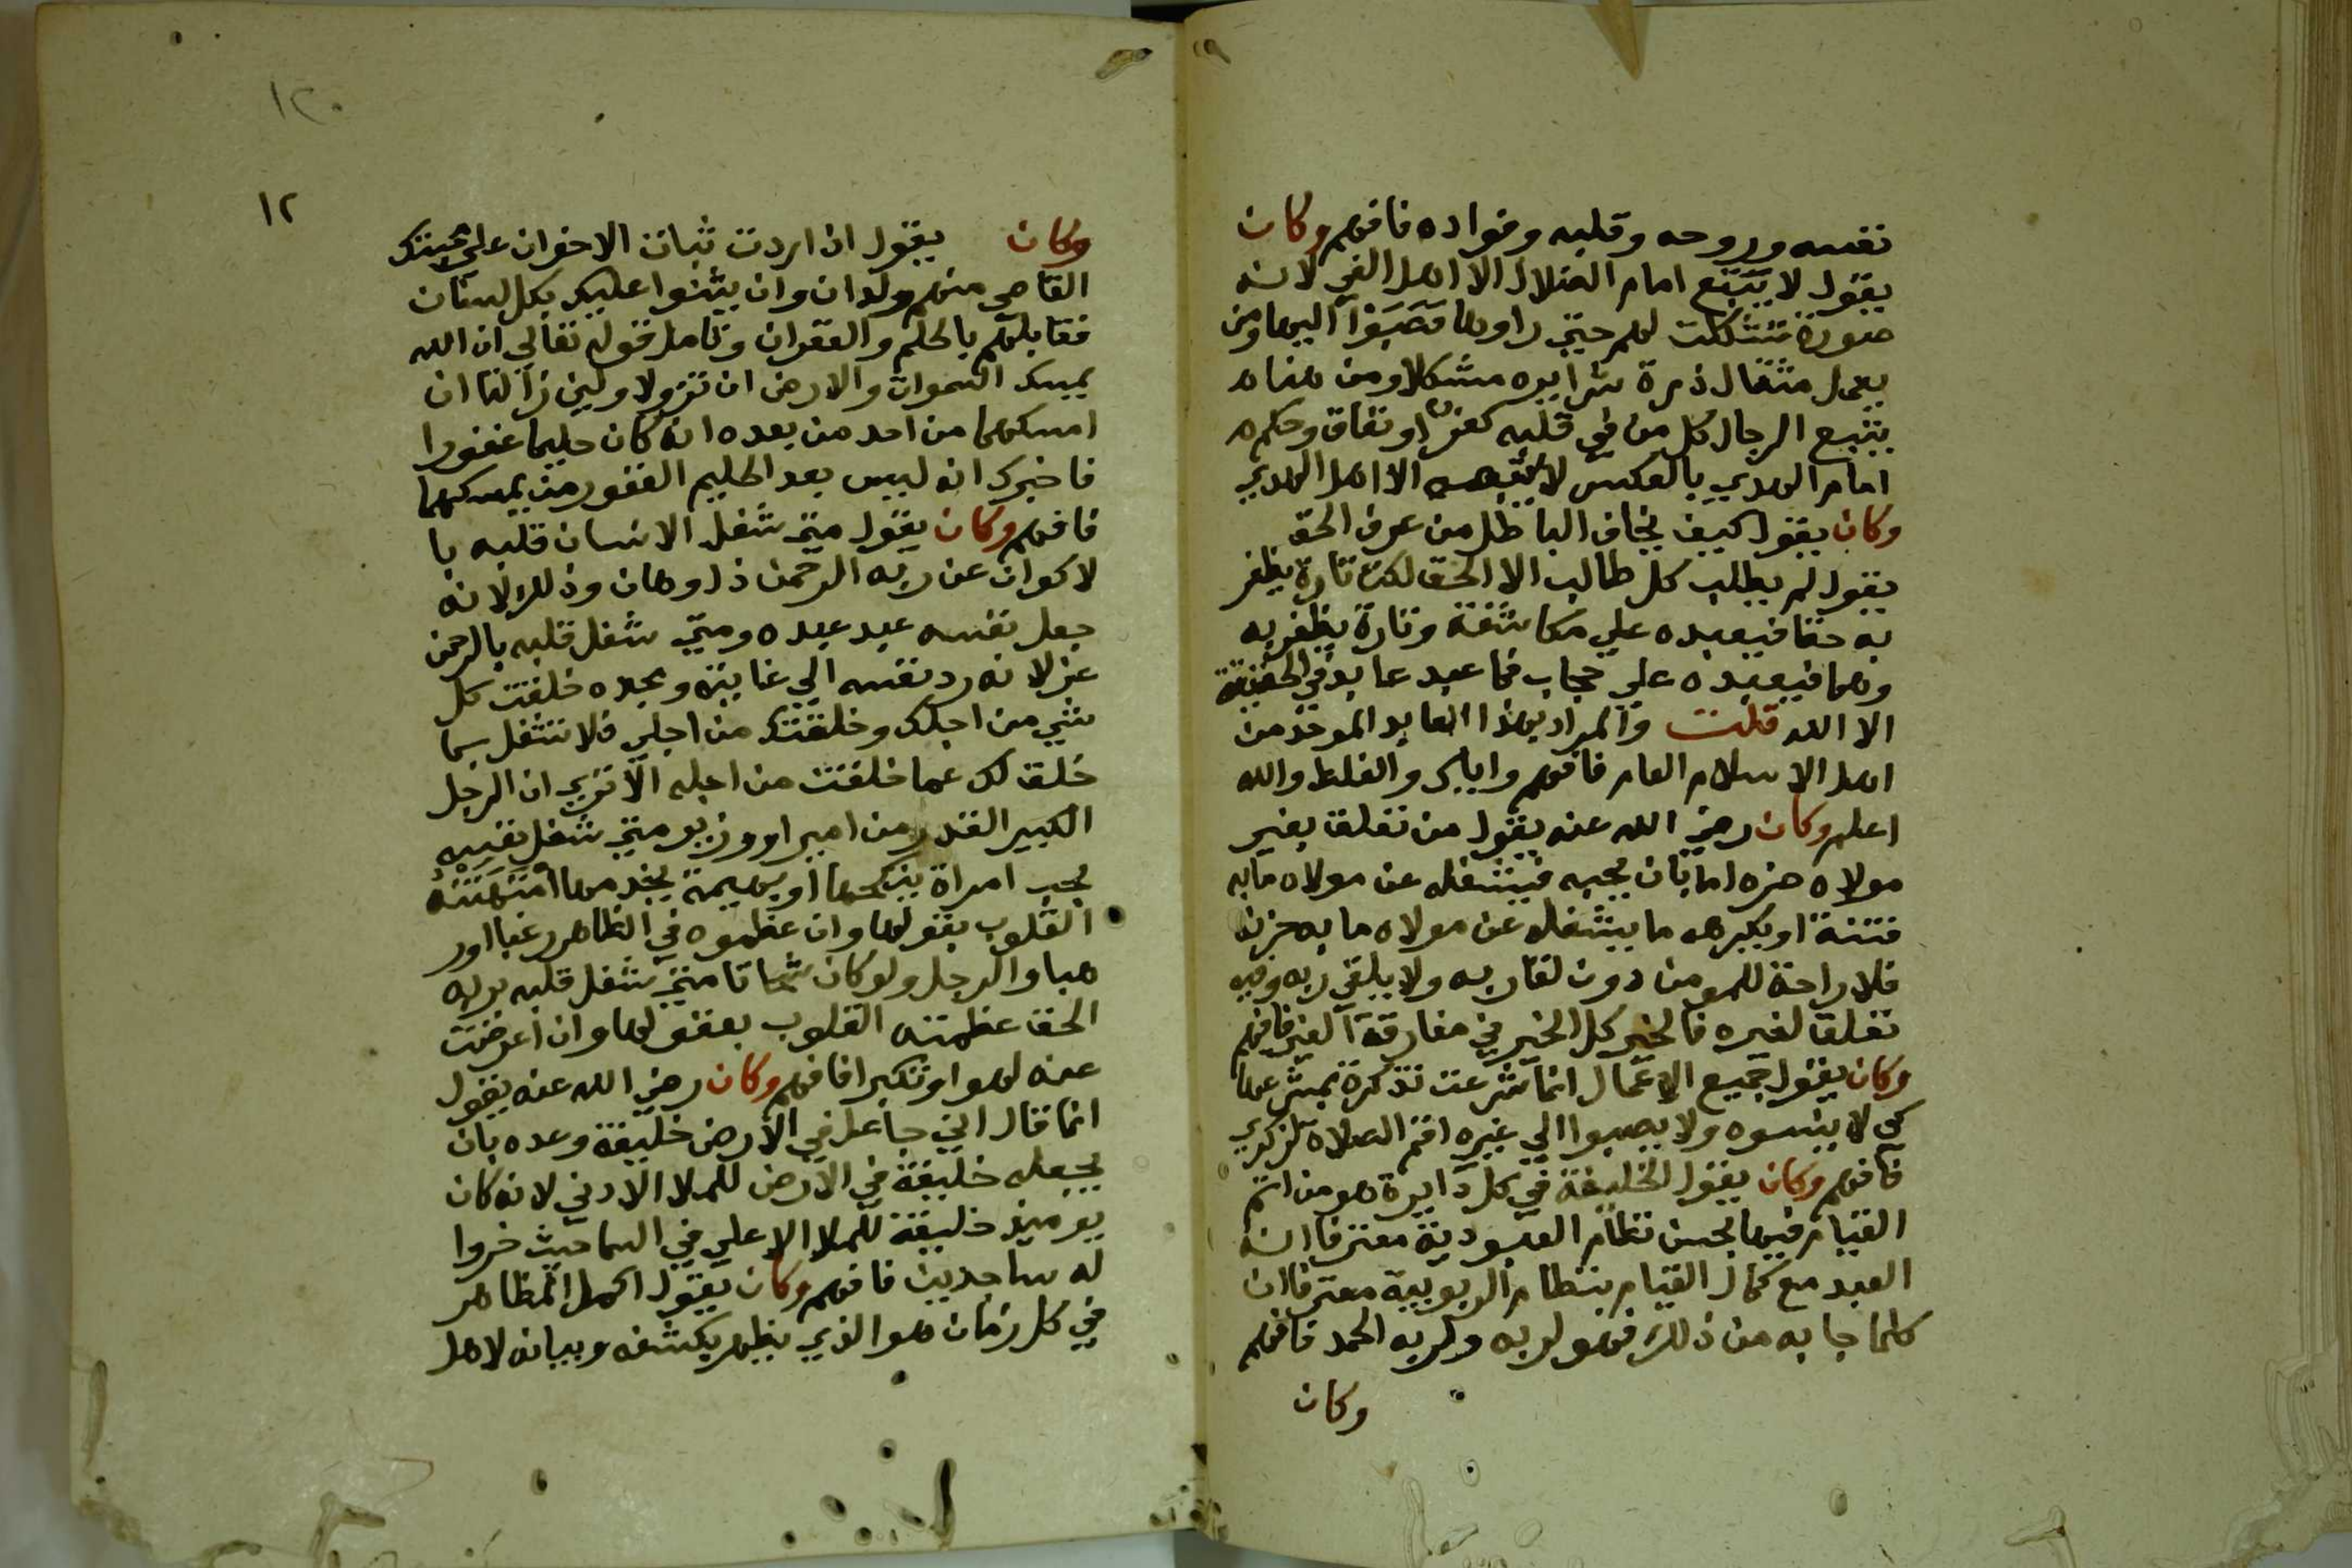 نفسه وروحه وقلبه وفواده فافهم وكان
يقول لا يتبع امام الضلال الا اهل الغي لانه
صورة تشكلت لهم حتى راوها فصبوا اليها ومن
يعمل مثقال ذرة شرا يره مشكلا ومن هنا
يتبع الرجال كل من في قلبه كفر او نفاق وحكم
امام الهدي بالعكس لا يتبعه الا اهل الهدي
وكان يقول كيف يخاف الباطل من عرف الحق
يقول لم يطلب كل طالب الا الحق لكن تارة يظفر
به حقا فيعبده علي مكاشفة وتارة يظفر به
وهما فيعبده علي حجاب فما عبد عابد في الحقيقة
الا الله قلت والمراد بهذا العابد الموحد من
اهل الاسلام العام فافهم واياك والغلط والله
اعلم وكان رضي الله عنه يقول من تعلق بغير
مولاه ضره اما بان يحبه فيشغله عن مولاه ما به
فتنة او يكرهه ما يشغله عن مولاه ما به حزنه
فلا راحة للمومن دون لقا ربه ولا يلقي ربه وفيه
تعلق لغيره فالخير كل الخير في مفارقة الغير فافهم
وكان يقول جميع الاعمال انما شرعت تذكرة بمشرعها
كي لا ينسوه ولا يصبوا الي غيره اقم الصلاة لذكري
فافهم وكان يقول الخليفة في كل دايرة هو من اتم
القيام فيها بحسن نظام العبودية معترفا انه
العبد مع كمال القيام بنظام الربوبية معترفا ان
كلما جا به من ذلك فهو لربه ولربه الحمد فافهم
وكان
١٢٠
١٢
وكان يقول ان اردت ثبات الاخوان علي محبتك
القاصي منهم والدان وان يثنوا عليك بكل لسان
فقابلهم بالحلم والغفران وتامل قوله تعالي ان الله
يمسك السموات والارض ان تزولا ولين زالتا ان
امسكهما من احد من بعده انه كان حليما غفورا
فاخبرك انه ليس بعد الحليم الغفور من يمسكهما
فافهم وكان يقول متى شغل الانسان قلبه با
لاكوان عن ربه الرحمن ذل وهان وذلك لانه
جعل نفسه عبد عبده ومتى شغل قلبه بالرحمن
عز لانه رد نفسه الي غايته ومجده خلقت كل
شي من اجلك وخلقتك من اجلي فلا تشتغل بما
خلق لك عما خلقت من اجله الا تري ان الرجل
الكبير القدر من امير او وزير متى شغل نفسه
بحب امراة ينكحها او بهيمة يخدمها امتهنته
القلوب بعقولها وان عظموه في الظاهر رغبا او ر
هبا والرجل ولو كان شحاتا متى شغل قلبه بربه
الحق عظمته القلوب بعقولها وان اعرضت
عنه لهوا وتكبرا فافهم وكان رضي الله عنه يقول
انما قال اني جاعل في الارض خليفة وعده بان
يجعله خليفة في الارض للملا الادني لانه كان
يوميذ خليفة للملا الاعلي في السما حيث خروا
له ساجدين فافهم وكان يقول اكمل المظاهر
في كل زمان هو الذي يظهر بكشفه وبيانه لاهل